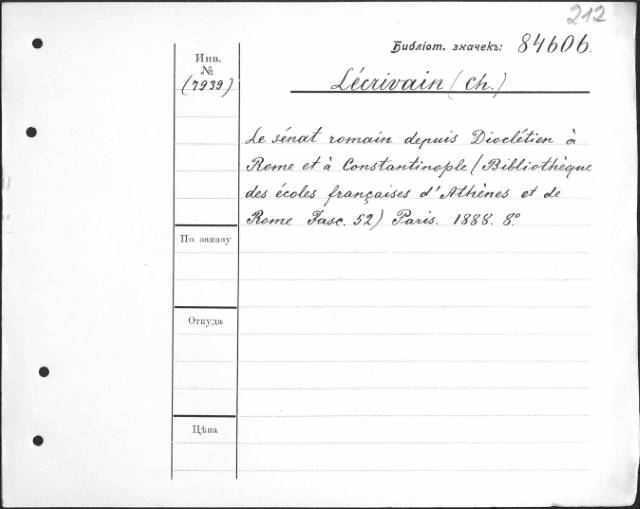 212
Библіот. значекъ: 84606.
Инв.
№
(7939)
Lécrivain (Ch.)
Le sénat romain depuis Dioclétien à
Rome et à Constantinople (Bibliothèque
des écoles françaises d'Athènes et de
Rome Fasc. 52) Paris. 1888. 8°
По заказу
Откуда
Цѣна